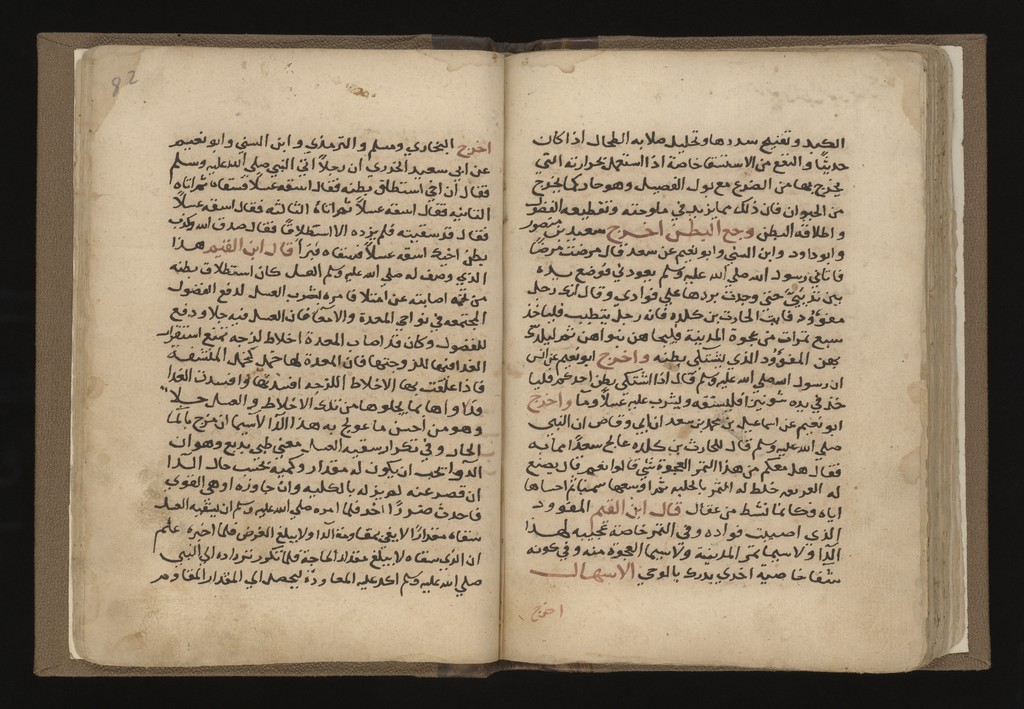 الكبد وتفتيح سددها وتحليل صلابه الطحال اذا كان
حديثا والنفع من الاستسقا خاصة اذا استعمل بحرارته التي
يخرج بها من الضرع مع بول الفصيل وهو حار كما يخرج
من الحيوان فان ذلك مما يزيد في ملوحته وتقطيعه الفضول
واطلاقه البطن وجع البطن اخرج سعيد بن منصور
وابو داود وابن السني وابو نعيم عن سعد قال مرضت مرضا
فاتاني رسول الله صلي الله عليه وسلم يعودني فوضع يده
بين ثديي حتى وجدت بردها علي فوادي وقال انك رجل
مفوود فايت الحارث بن كلده فانه رجل يتطبب فلياخذ
سبع تمرات من عجوة المدينة فليجاهن بنواهن ثم ليلدك
بهن المفوود الذي يشتكي بطنه واخرج ابو نعيم عن انس
ان رسول الله صلي الله عليه وسلم قال اذا اشتكي بطن احدكم فليا
خذ في يده شونيزا فليستفه ويشرب عليه عسلا وما واخرج
ابو نعيم عن اسماعيل بن محمد بن سعد ابن ابي وقاص ان النبي
صلي الله عليه وسلم قال للحارث بن كلده عالج سعدا مما به
فقال هل معكم من هذا التمر العجوة شي قالوا نعم قال يصنع
له الفريقه خلط له التمر بالحلبه ثم اوسعها سمنا ثم احساها
اياه فكانما نشط من عقال قال ابن القيم المفوود
الذي اصيب فواده وفي التمر خاصة عجيبه لهذا
الدا ولا سيما تمر المدينة ولا سيما العجوة منه وفي كونه
سبعا خاصيه اخري يدرك بالوحي الاسهال
اخرج
82
اخرج البخاري ومسلم والترمذي وابن السني وابو نعيم
عن ابي سعيد الخدري ان رجلا اتي النبي صلي الله عليه وسلم
فقال ان اخي استطلق بطنه فقال اسقه عسلا فسقاه ثم اتاه
الثانيه فقال اسقه عسلا ثم اتاه الثالثه فقال اسقه عسلا
فقال قد سقيته فلم يزده الا استطلاقا فقال صدق الله وكذب
بطن اخيك اسقه عسلا فسقاه فبرا قال ابن القيم هذا
الذي وصف له صلي الله عليه وسلم العسل كان استطلاق بطنه
من تخمه اصابته عن امتلا فامره بشرب العسل لدفع الفضول
المجتمعه في نواحي المعدة والامعا فان العسل فيه جلا ودفع
للفضول وكان قد اصاب المعدة اخلاط لزجه تمنع استقرار
الغدا فيها للزوجتها فان المعدة لها خمل كخمل المنشفة
فاذا علقت بها الاخلاط اللزجه افسدتها وافسدت الغدا
فدواوها بما يجلوها من تلك الاخلاط والعسل جلا
وهو من احسن ما عولج به هذا الدا لاسيما ان مزج بالما
الحار وفي تكرار سقيه العسل معني طبي بديع وهو ان
الدوا يجب ان يكون له مقدار وكمية بحسب حال الدا
ان قصر عنه لم يزيله بالكليه وان جاوزه اوهي القوي
فاحدث ضررا اخر فلما امره صلي الله عليه وسلم ان يسقيه العسل
سقاه مقدارا لا يفي بمقاومة الدا ولا يبلغ الغرض فلما اخبره علم
ان الذي سقاه لا يبلغ مقدار الحاجة فلما تكرر ترداده الي النبي
صلي الله عليه وسلم اكد عليه المعاودة ليصل الي المقدار المقاوم